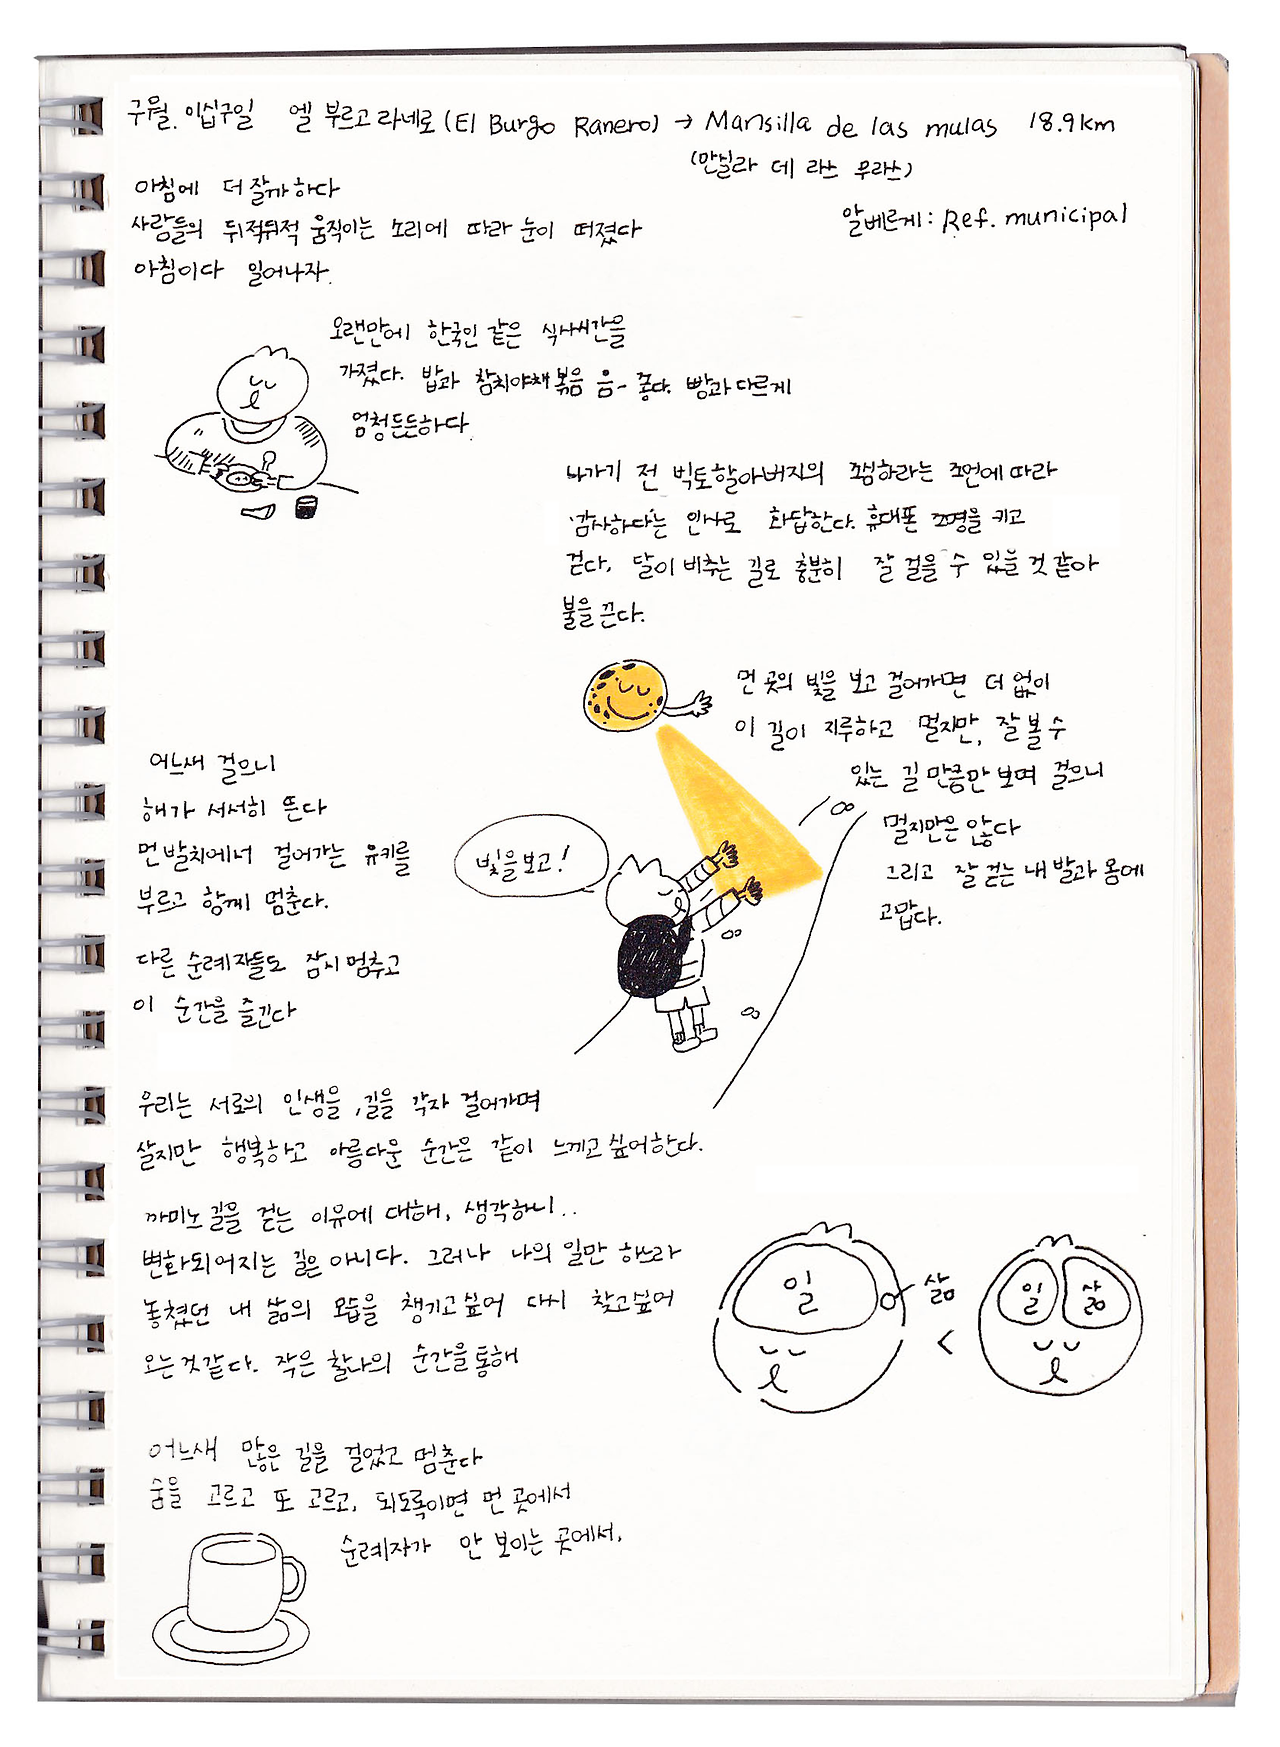 구월. 이십구일 엘 부르고 라네로 (El Burgo Ranero) → Mansilla de las mulas 18.9km
(만실라 데 라쓰 무라쓰)
알베르게 : Ref. municipal
아침에 더 잘까 하다
사람들의 뒤적뒤적 움직이는 소리에 따라 눈이 떠졌다
아침이다 일어나자.
오랜만에 한국인 같은 식사시간을
가졌다. 밥과 참치야채볶음 음- 좋다. 빵과 다르게
엄청든든하다.
나가기 전 빅토할아버지의 조심하라는 조언에 따라
'감사하다'는 인사로 화답한다. 휴대폰 조명을 키고
걷다. 달이 비추는 길로 충분히 잘 걸을 수 있을 것 같아
불을 끈다.
먼 곳의 빛을 보고 걸어가면 더 없이
이 길이 지루하고 멀지만, 잘 볼 수
있는 길 만큼만 보며 걸으니
멀지만은 않다
그리고 잘 걷는 내 발과 몸에
고맙다.
빛을보고!
어느새 걸으니
해가 서서히 뜬다
먼발치에서 걸어가는 유키를
부르고 함께 멈춘다.
다른 순례자들도 잠시 멈추고
이 순간을 즐긴다
우리는 서로의 인생을, 길을 각자 걸어가며
살지만 행복하고 아름다운 순간은 같이 느끼고싶어한다.
까미노길을 걷는 이유에 대해, 생각하니..
변화되어지는 길은 아니다. 그러나 나의 일만 하느라
놓쳤던 내 삶의 모습을 챙기고싶어 다시 찾고싶어
오는것같다. 작은 찰나의 순간을통해
일 삶 < 일 삶
어느새 많은 길을 걸었고 멈춘다
숨을 고르고 또 고르고, 되도록이면 먼 곳에서
순례자가 안 보이는 곳에서,